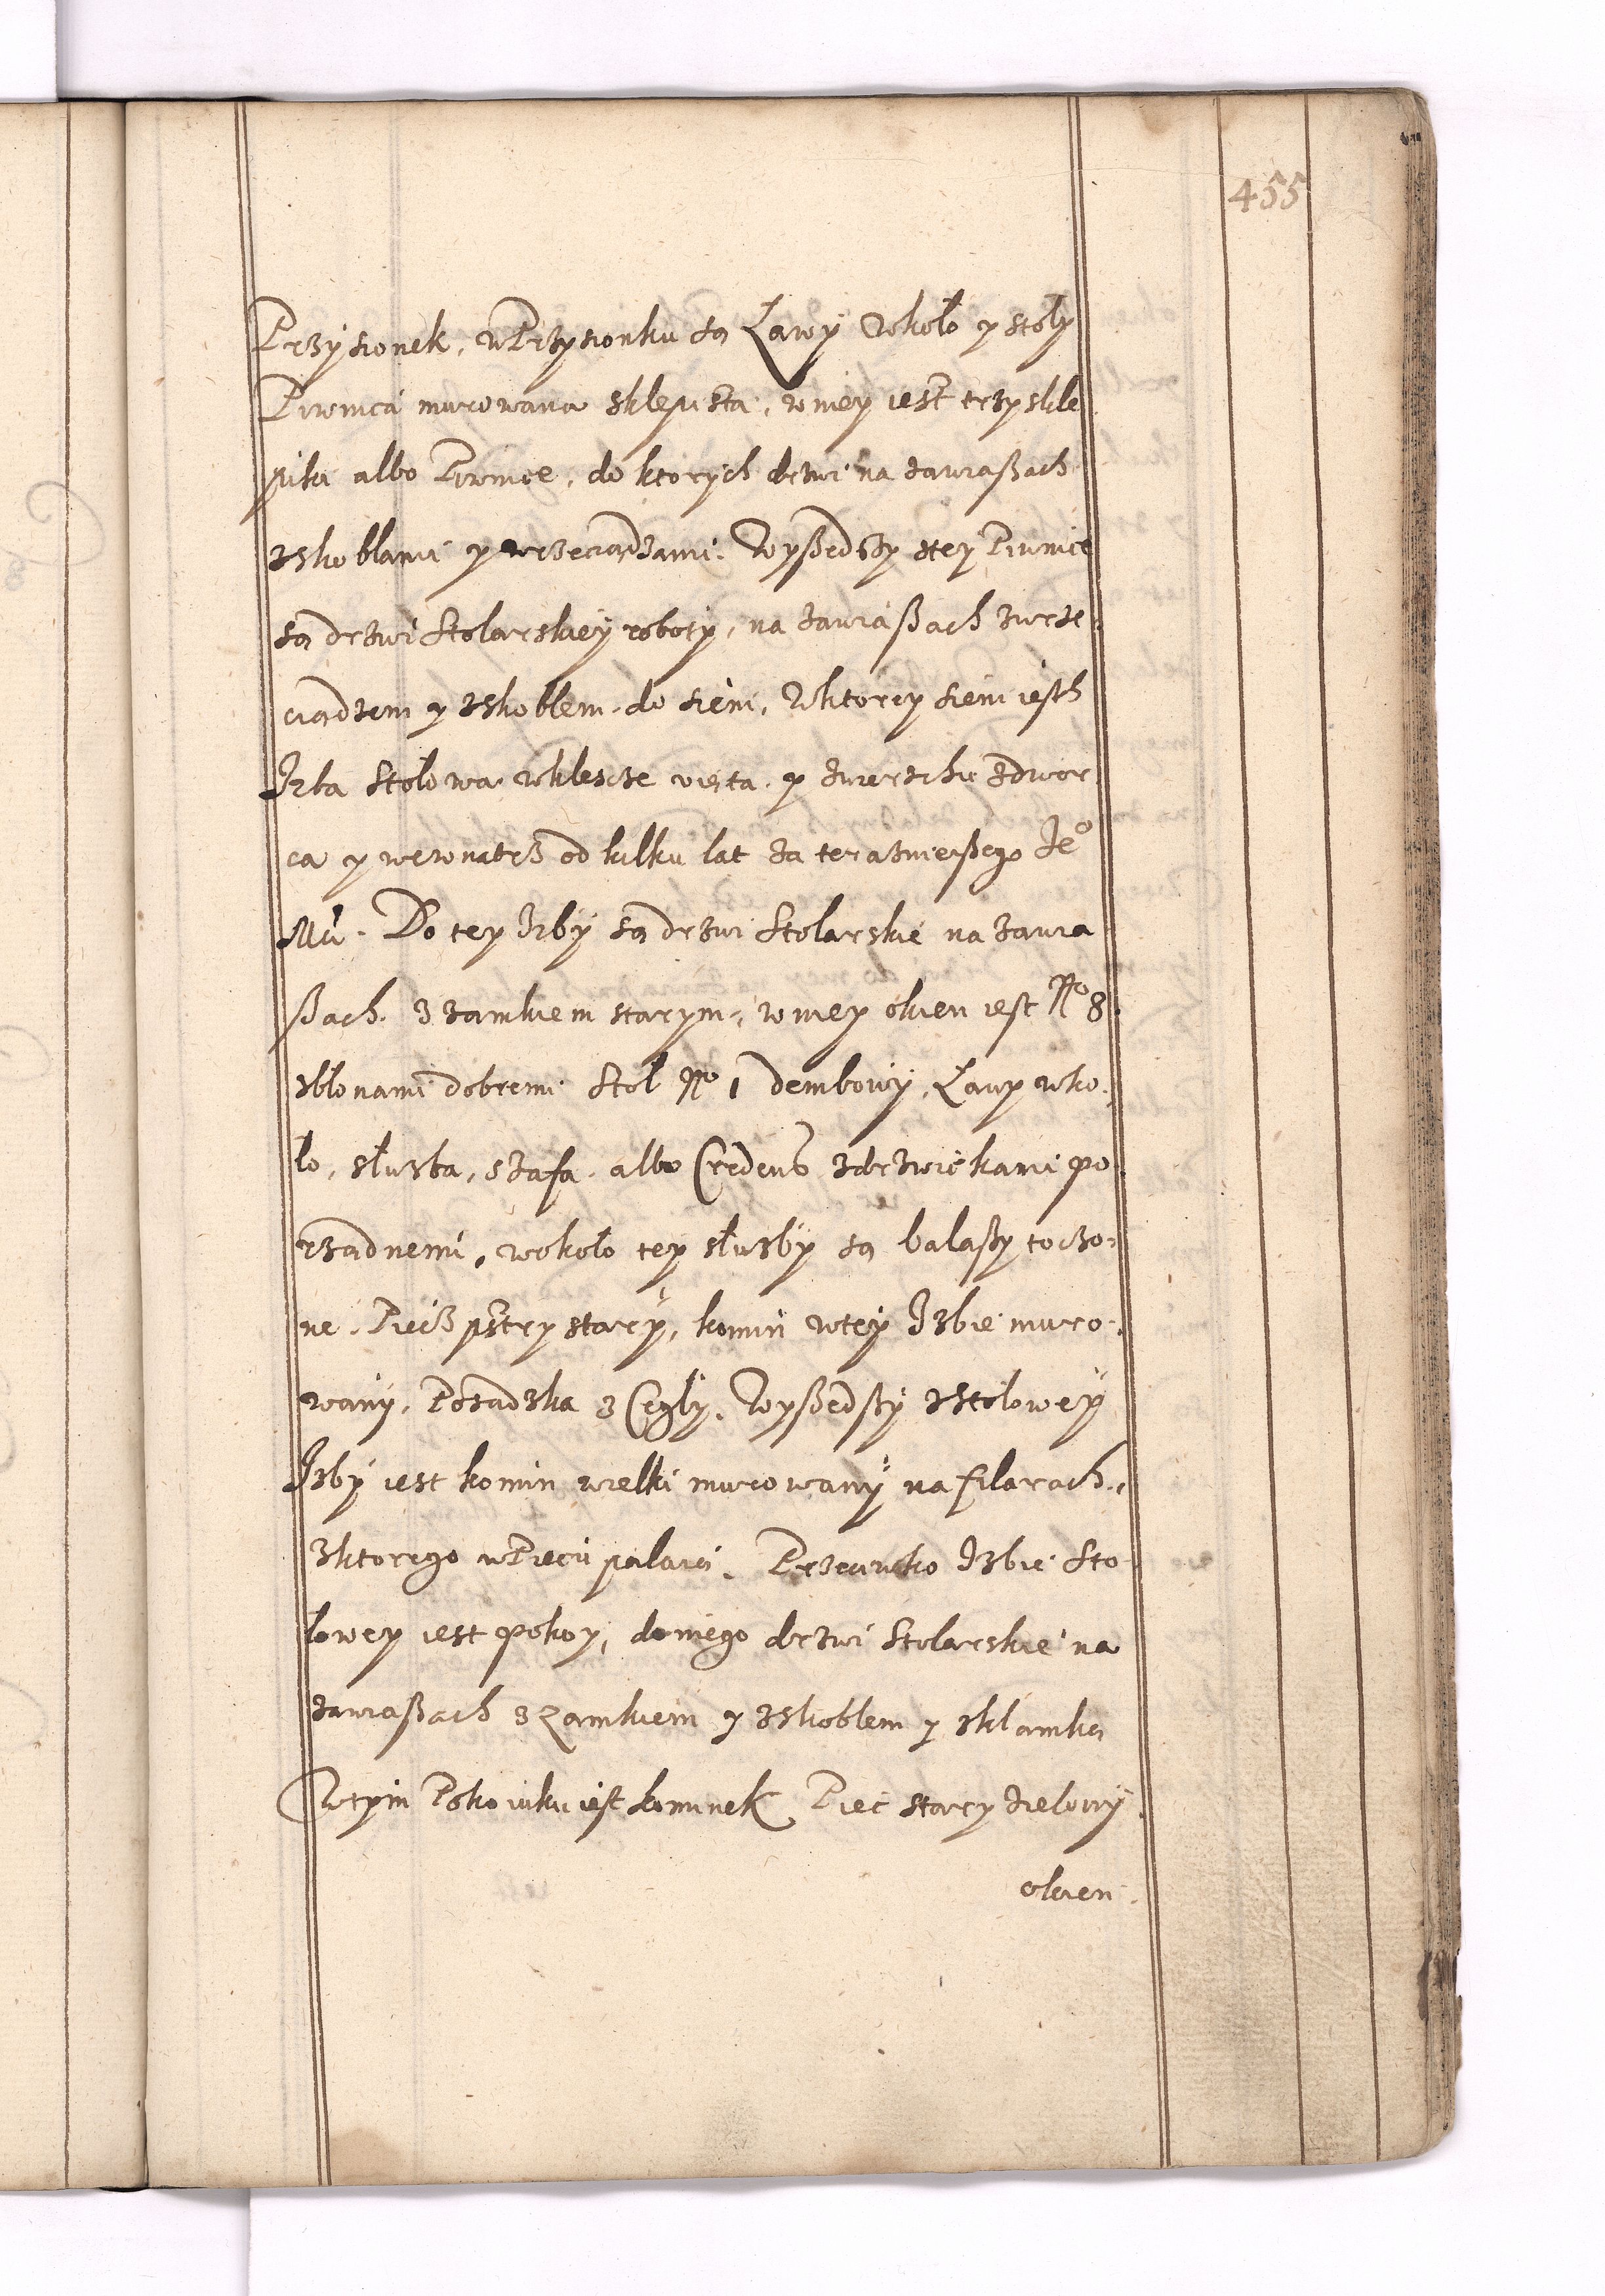 455
Przysionek, wPrzysionku są Ławy wkoło y stoły
Piwnica murowana sklepista, w niey iest trzy skle
piki albo Piwnice, do ktorych drzwi na zawiaßach
zskoblami y wrzeciądzami. Wyßedßy ztey Piwnice
są drzwi Stolarskiey roboty, na zawiaßach zwrze-
ciądzem y zskoblem do sieni, wktorey sieni iesth
Izba Stołowa wkleszcze wzięta y zwierzchu zdwor
ca y wewnatrz od kilku lat za teraznieyßego Je°
Mci. Do tey Izby są drzwi Stolarskie na zawia
ßach z zamkiem starym, w niey okien iest No 8
zbłonami dobremi Stoł No 1 dembowy, Ławy wko-
ło, słuzba, szafa albo Credens zdrzwickami po
rzadnemi, wokoło tey słuzby są balaßy toczo-
ne. Piecz pstry stary, komin wtey Izbie muro-
wany, Posadzka z Cegły, Wyßedßy zstołowey
Izby iest komin wielki murowany na filarach,
zktorego wPiecu palaią. Przeciwko Izbie Sto
łowey iest Pokoy, do niego drzwi Stolarskie na
zawiaßach z Zamkiem y zskoblem y zklamką
Wtym Pokoiuku iest kominek Piec stary zielony
okien